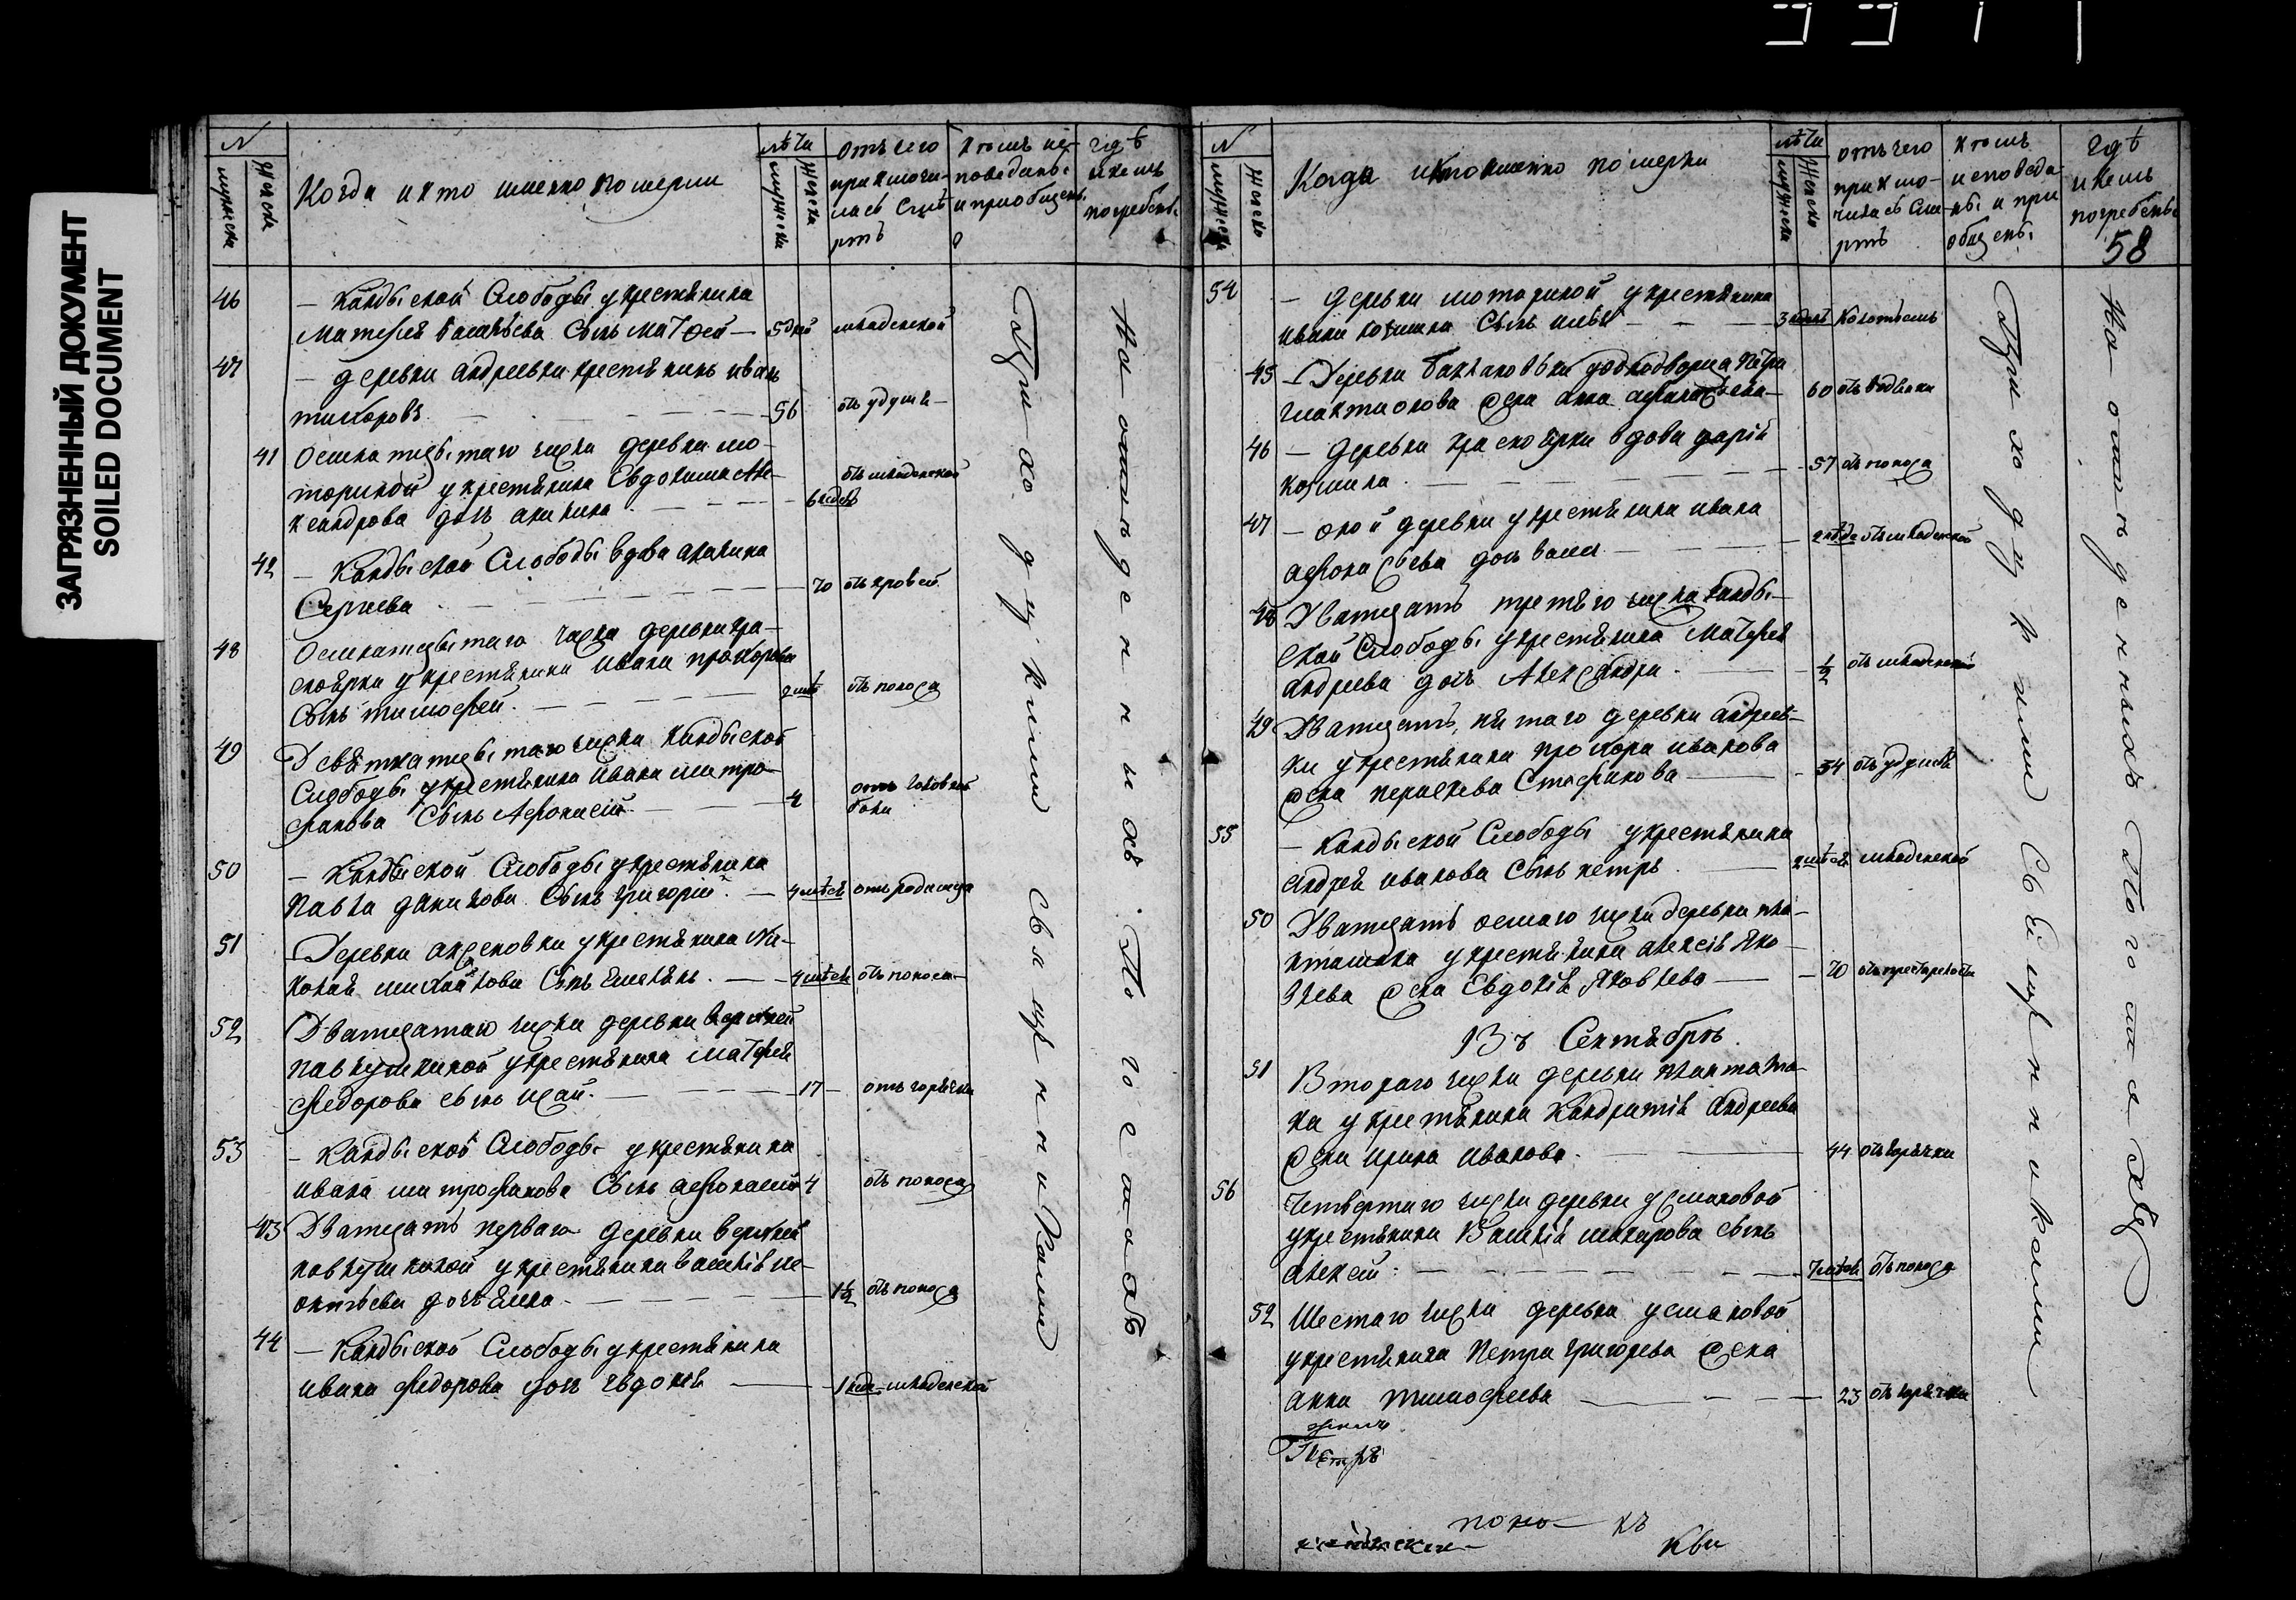 ЗАГРЯЗНЕННЫЙ ДОКУМЕНТ
SOILED DOCUMENT
N
мужеска
Женска
Когда и кто именно померли
лѣта
мужеска
Женска
отъ чего приключилась Смѣрть
кѣмъ исповеданы и приобщены
гдѣ и кемъ погребены
46
— Кандынской Слободы у крестьянина
Матфея Савельева Сынъ Матфей — 5 дней младенской
47
— деревни андреевки крестьянинъ иванъ
тихоровъ — 56 отъ удушья —
41 Осмнатцытаго числа деревни мо-
ториной у крестьянина Евдокима Але-
ксандрова дочь акилина — 6 недѣль отъ младенской
42 — Кандынской Слободы вдова акилина
Сергиева — 70 отъ крови
48
Осмнатцытаго числа деревни кра-
сноярки у крестьянина ивана прохорова
Сынъ тимофей — 2 отъ поноса
49
Девятнатцытаго числа Кандынской
Слободы у крестьянина ивана митро-
фанова Сынъ Афонасей — 4 отъ головной
боли
50
— Кандынской Слободы у крестьянина
Павла данилова Сынъ григорий — 4 мѣсе отъ родимца
51
Деревни аксеновки у крестьянина Ни-
колая михайлова Сынъ Емельянъ — 4 мѣсе отъ поноса
52
Дватцатаго числа деревни верхней
павлушкиной у крестьянина Матфея
Федорова сынъ исай — 17 — отъ горячки
53
— Кандынской Слободы у крестьянина
ивана митрофанова Сынъ афонасий 4 отъ поноса
43 Дватцать перваго деревни верхней
павлушкиной у крестьянина василья ле-
онтьева дочь Анна — 1½ отъ поноса
44 — Кандынской Слободы у крестьянина
ивана Федорова дочь Евдокия — 1 неде младенской
Приходцкими Священниками
На отведенныхъ По го местахъ
N
мужеска
Женска
Когда и кто именно померли
лѣта
мужеска
Женска
отъ чего приключилась смерть
кѣмъ исповеданы и приобщены
гдѣ и кемъ погребены
58
54
— деревни моториной у крестьянина
ивана Сынъ илья — 3 недѣл Колотьемъ
45 — Деревни Баклановки Петра
Жена анна — 60 отъ водянки
46 — деревни красноярки вдова дария
козмина — 57 отъ поноса
47 — оной деревни у крестьянина ивана
афонасьева дочь — 2 неде отъ младенской
48 Дватцать третьяго числа Канды-
ской Слободы у крестьянина Матфея
андреева дочь Александра — ½ отъ младенской
49 Дватцать пятаго деревни андреев-
ки у крестьянина прохора иванова
жена параскева Стефанова — 54 отъ удушья
55
— Кандынской Слободы у крестьянина
андрея иванова Сынъ петръ — 2 мѣсе младенской
50 Дватцать осмаго числа деревни пла-
у крестьянина алексея Яко-
влева жена Евдокия Яковлева — 70 отъ престарелости
Въ Сентябрѣ
51 Втораго числа деревни
ка у крестьянина Кондратия андреева
жена ирина иванова — 44 отъ горячки
56
Четвертаго числа деревни усмановой
у крестьянина Василья макарова сынъ
алексей — 7 мѣсе отъ поноса
52 Шестаго числа деревни усмановой
у крестьянина Петра григорева жена
анна тимофеева — 23 отъ горячки
Петръ
поно — къ
кви
Приходцкими Священниками
На отведенныхъ По местахъ